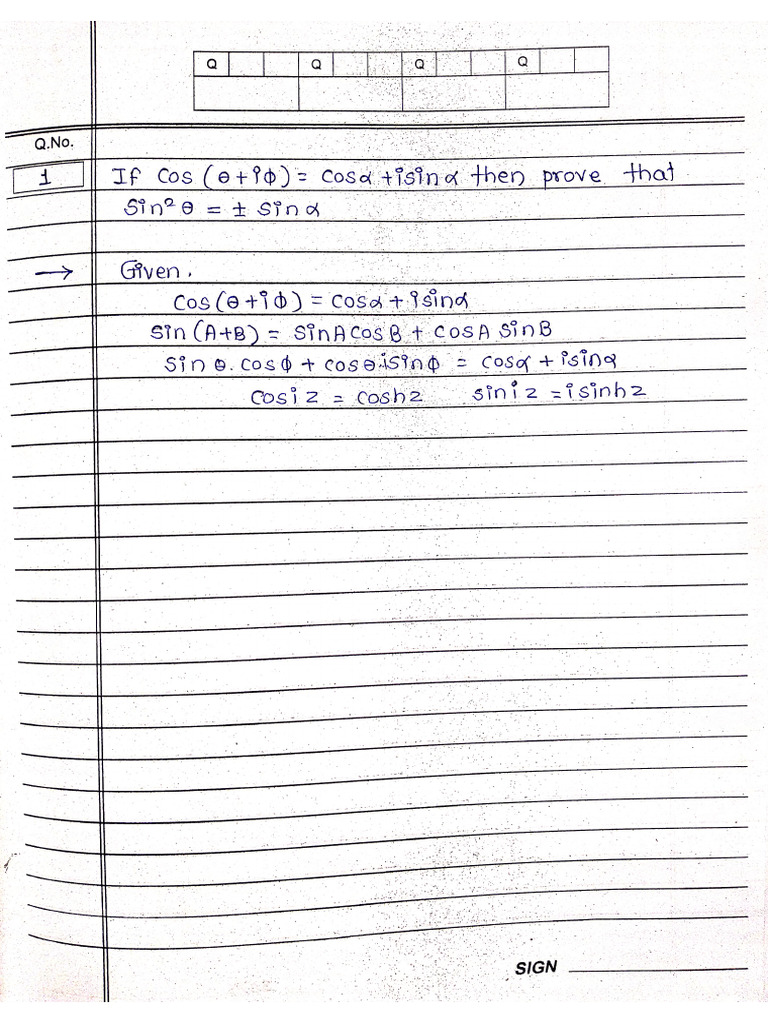 Q Q Q Q
Q.No.
1 If cos (θ+iϕ) = cosα +isin α then prove that
sin² θ = ± sinα
→ Given.
cos(θ+iϕ) = cosα + isinα
sin (A+B) = sinA cos B + cosA sinB
sin θ. cosϕ + cosθ.isinϕ = cosα + isinα
cosi z = coshz sini z = isinhz
SIGN